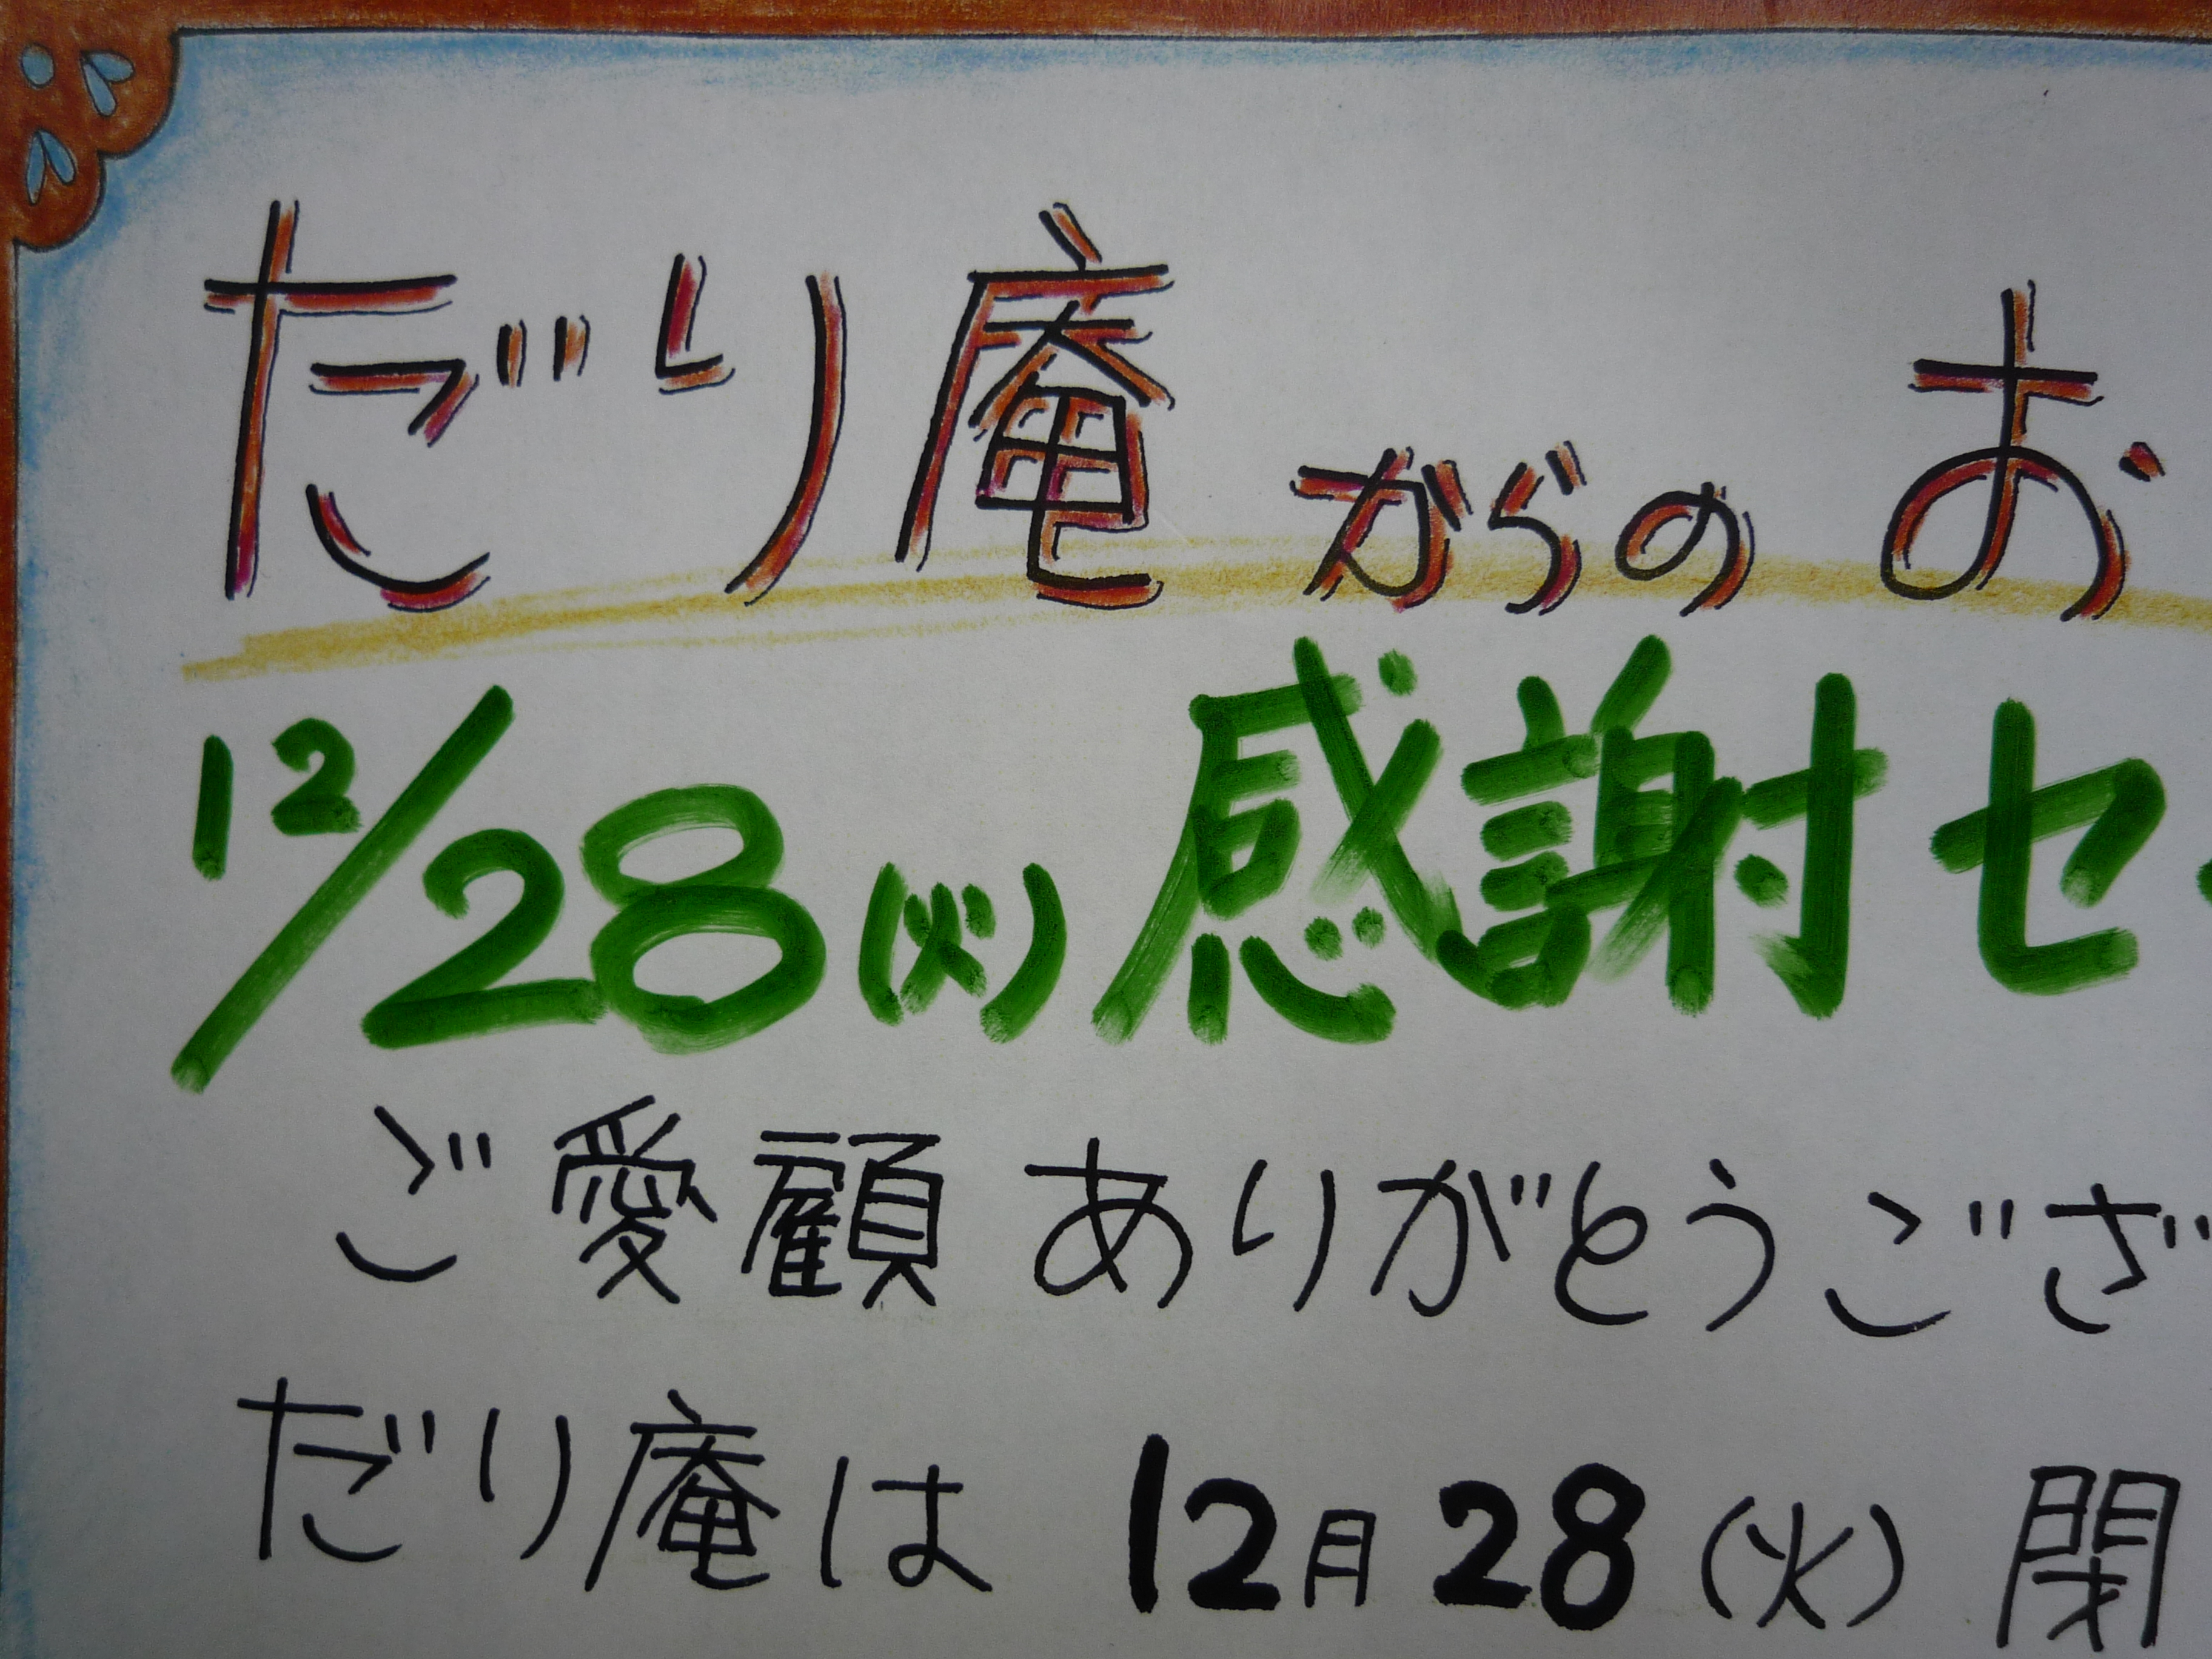 だり庵からのお
12/28(火)感謝セ
ご愛顧ありがとうござ
だり庵は 12月28(火)閉